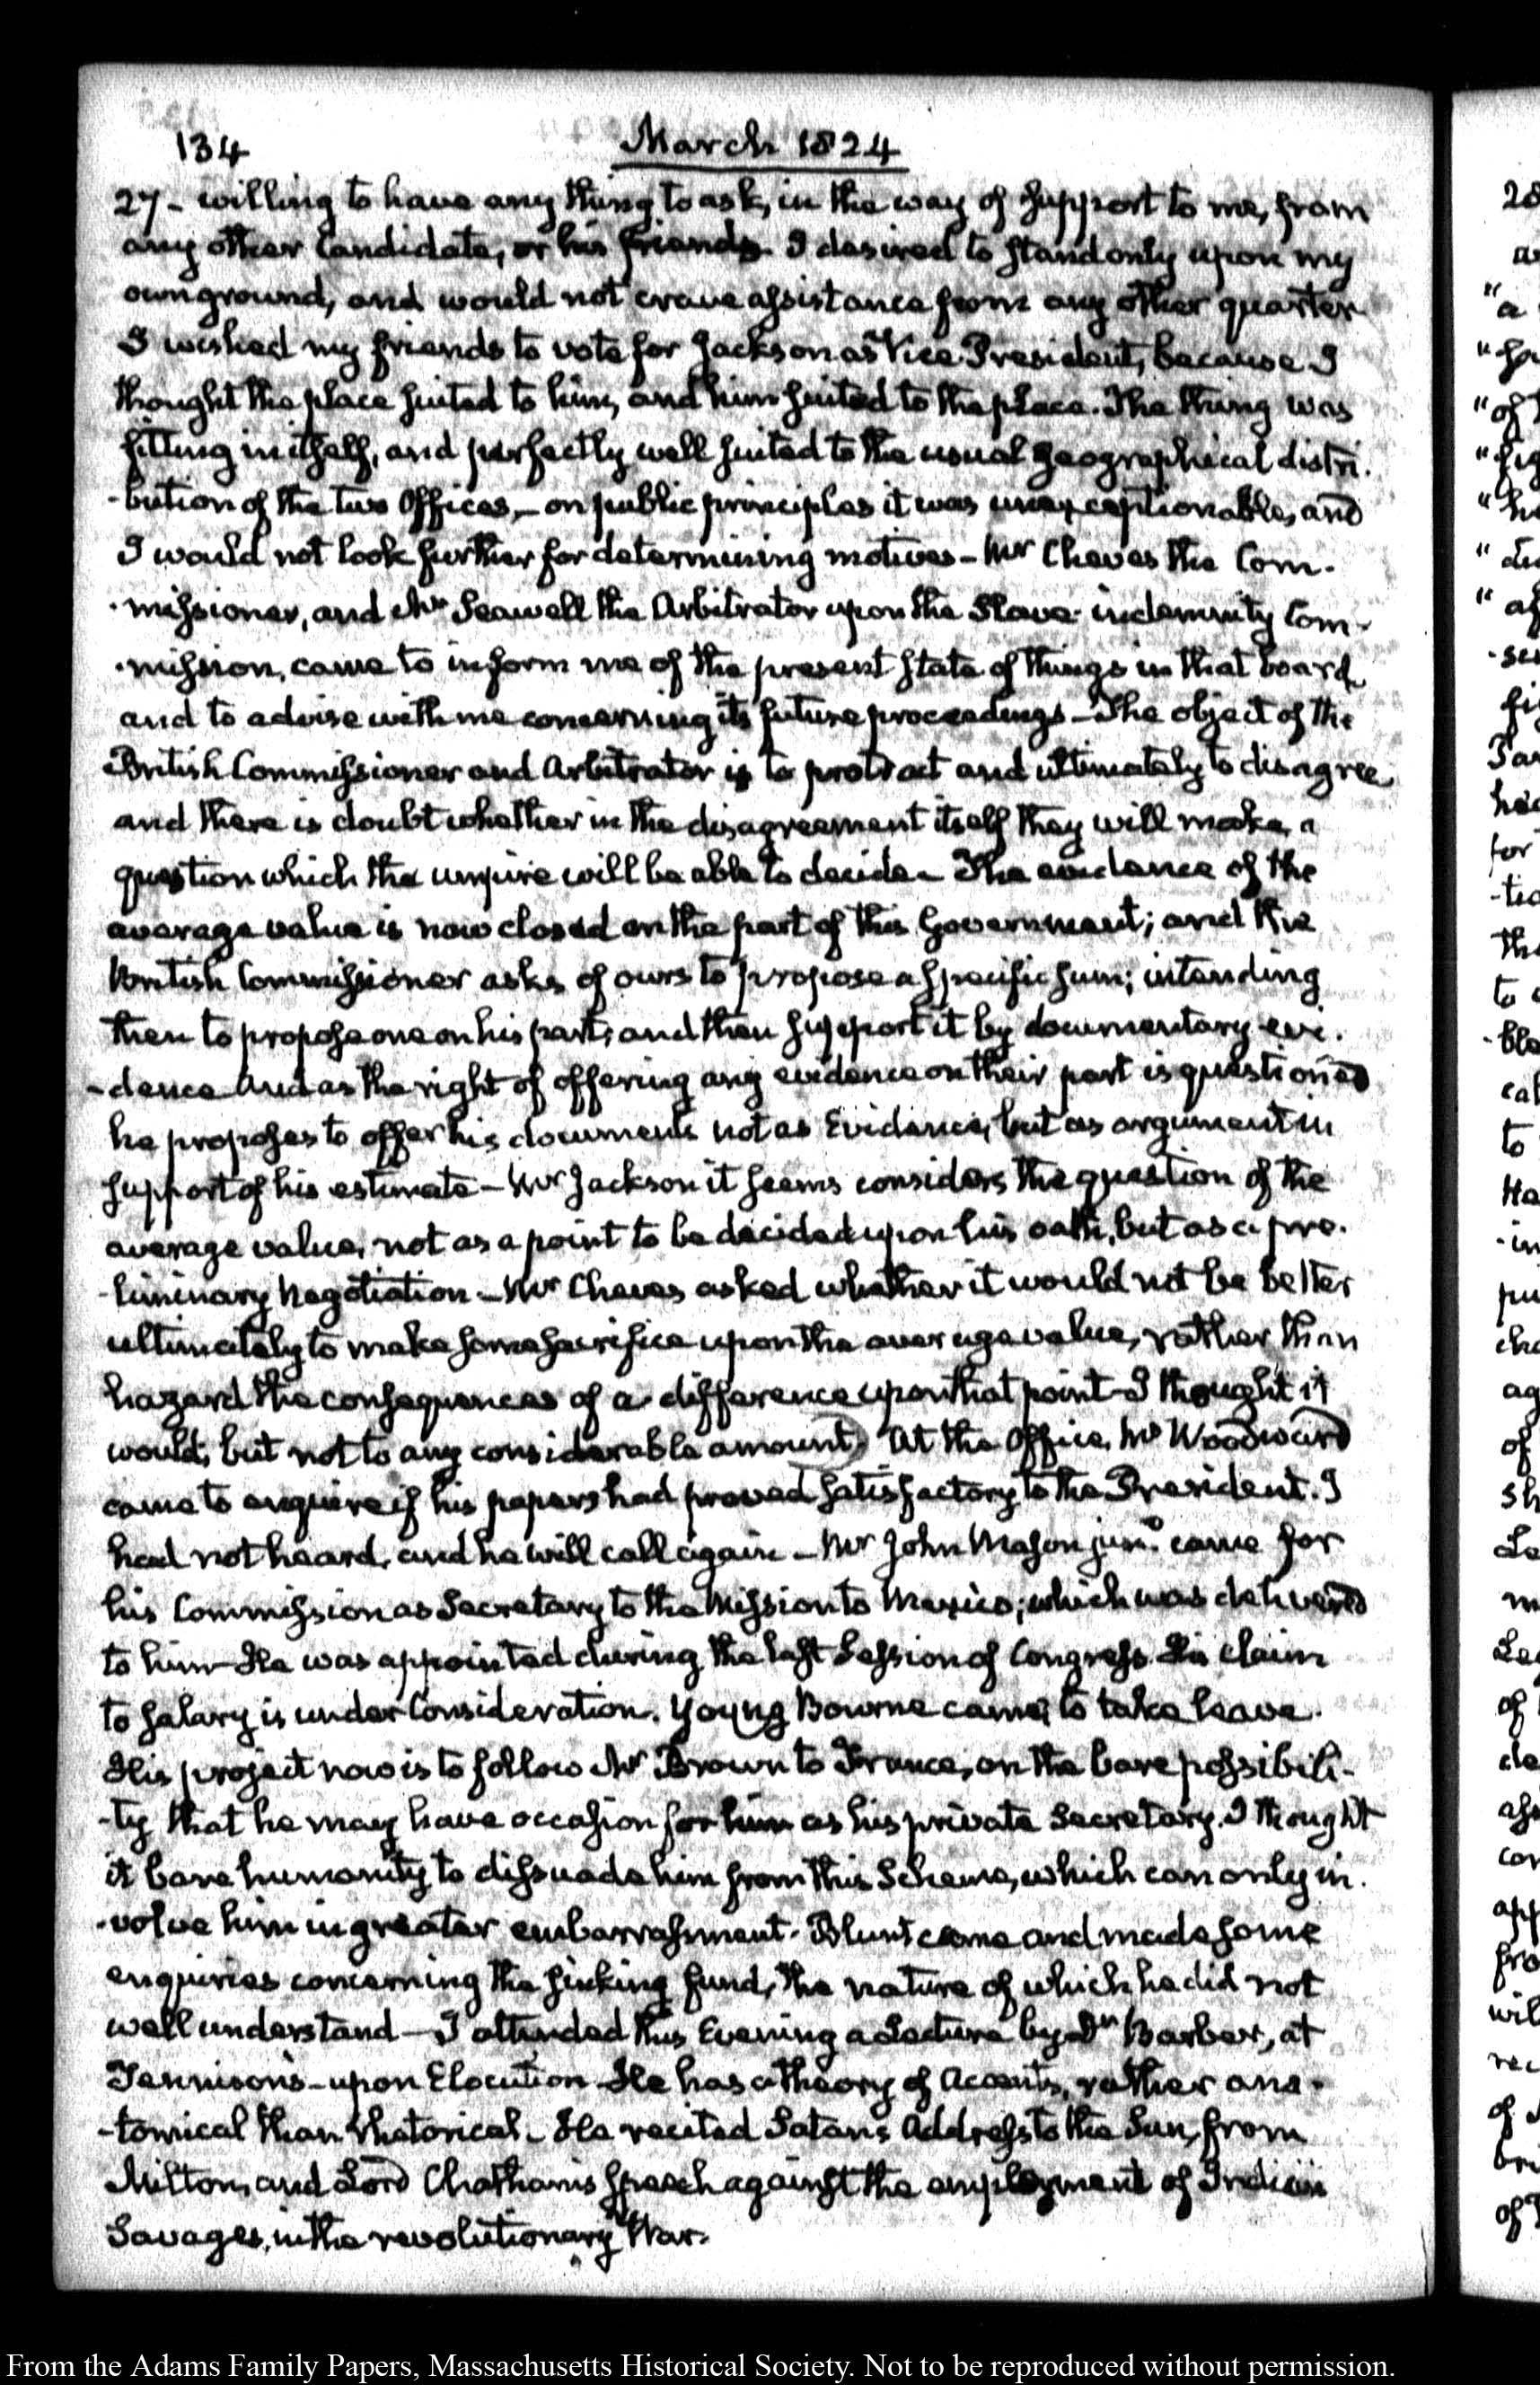 134
March 1824
27 – willing to have any thing to ask, in the way of support to me, from
any other Candidate, or his friends. I desired to stand only upon my
own ground, and would not crave assistance from any other quarter
I wished my friends to vote for Jackson as Vice President, because I
thought the place suited to him, and him suited to the place. The thing was
fitting in itself, and perfectly well suited to the usual geographical distri-
-bution of the two Offices, – on public principles it was unexceptionable, and
I would not look further for determining motives – Mr Cheves the Com-
-missioner, and Mr Seawell the Arbitrator upon the Slave-indemnity Com-
-mission, came to inform me of the present state of things in that board,
and to advise with me concerning its future proceedings – The object of the
British Commissioner and Arbitrator is to protract and ultimately to disagree
and there is doubt whether in the disagreement itself they will make a
question which the umpire will be able to decide – The evidence of the
average value is now closed on the part of this Government; and the
British Commissioner asks of ours to propose a specific sum; intending
then to propose one on his part; and then support it by documentary evi-
-dence And as the right of offering any evidence on their part is questioned
he proposes to offer his documents not as Evidence, but as argument in
support of his estimate – Mr Jackson it seems considers the question of the
average value, not as a point to be decided upon his oath, but as a pre-
-liminary Negotiation – Mr Cheves asked whether it would not be better
ultimately to make some sacrifice upon the average value, rather than
hazard the consequences of a difference upon that point – I thought it
would, but not to any considerable amount) At the Office, Mr Woodward
came to enquire if his papers had proved satisfactory to the President. I
had not heard, and he will call again – Mr John Mason junr. came for
his Commission as Secretary to the Mission to Mexico; which was delivered
to him – He was appointed during the last Session of Congress. His claim
to Salary is under Consideration. Young Bourne came to take leave.
His project now is to follow Mr Brown to France, on the bare possibili-
-ty that he may have occasion for him as his private Secretary. I thought
it bare humanity to dissuade him from this Scheme, which can only in-
-volve him in greater embarrassment. Blunt came and made some
enquiries concerning the sinking fund, the nature of which he did not
well understand – I attended this Evening a Lecture by Dr Barber, at
Tennison's – upon Elocution He has a theory of Accents, rather ana-
-tomical than rhetorical – He recited Satan's Address to the Sun, from
Milton, and Lord Chatham's speech against the employment of Indian
Savages, in the revolutionary War.
From the Adams Family Papers, Massachusetts Historical Society. Not to be reproduced without permission.